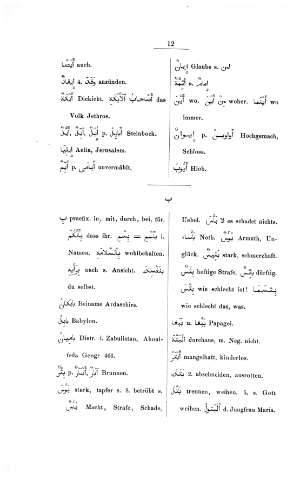 12
أَيْضًا auch.
إِيقَادٌ s. وقد 4. anzünden.
أَيْكَةٌ Dickicht. أَصْحَابُ الأَيْكَةِ das
Volk Jethros.
p. Steinbock.
إِيلِيَا Aelia, Jerusalem.
أَيِّمٌ p. أيامى unvermählt.
إيمان Glaube s. امن.
أَيْنَ wo. مِنْ أَيْنَ woher. أَيْنَمَا wo
إِيوَانٌ p. اواوين Hochgemach,
Schloss.
أَيُّوبُ Hiob.
ب
ب praefix. in, mit, durch, bei, für.
dass ihr. بِسْمِ = i.
Namen. wohlbehalten.
nach s. Ansicht.
du selbst.
Beiname Ardaschirs.
بَابِلُ Babylon.
بَامِيَانُ Distr. i. Zabulistan, Abul-
feda Geogr 464.
بِئْرٌ p. آبَارٌ Brunnen.
stark, tapfer s. 2. betrübt s.
بَأْسٌ Macht, Strafe, Schade,
Uebel. 2 es schadet nichts.
بَأْسَاءُ Noth. بُؤْسٌ Armuth, Un-
glück. stark, schmerzhaft.
heftige Strafe. dürftig.
بِئْسَ wie schlecht ist! بِئْسَمَا
wie schlecht das, was.
بَبْغَا u. بَبَّغَا Papagei.
البَتَّةَ durchaus, m. Neg. nicht.
أَبْتَرُ mangelhaft, kinderlos.
بتك 2. abschneiden, ausrotten.
بتل trennen, weihen. 5. s. Gott
weihen. البَتُولُ d. Jungfrau Maria.